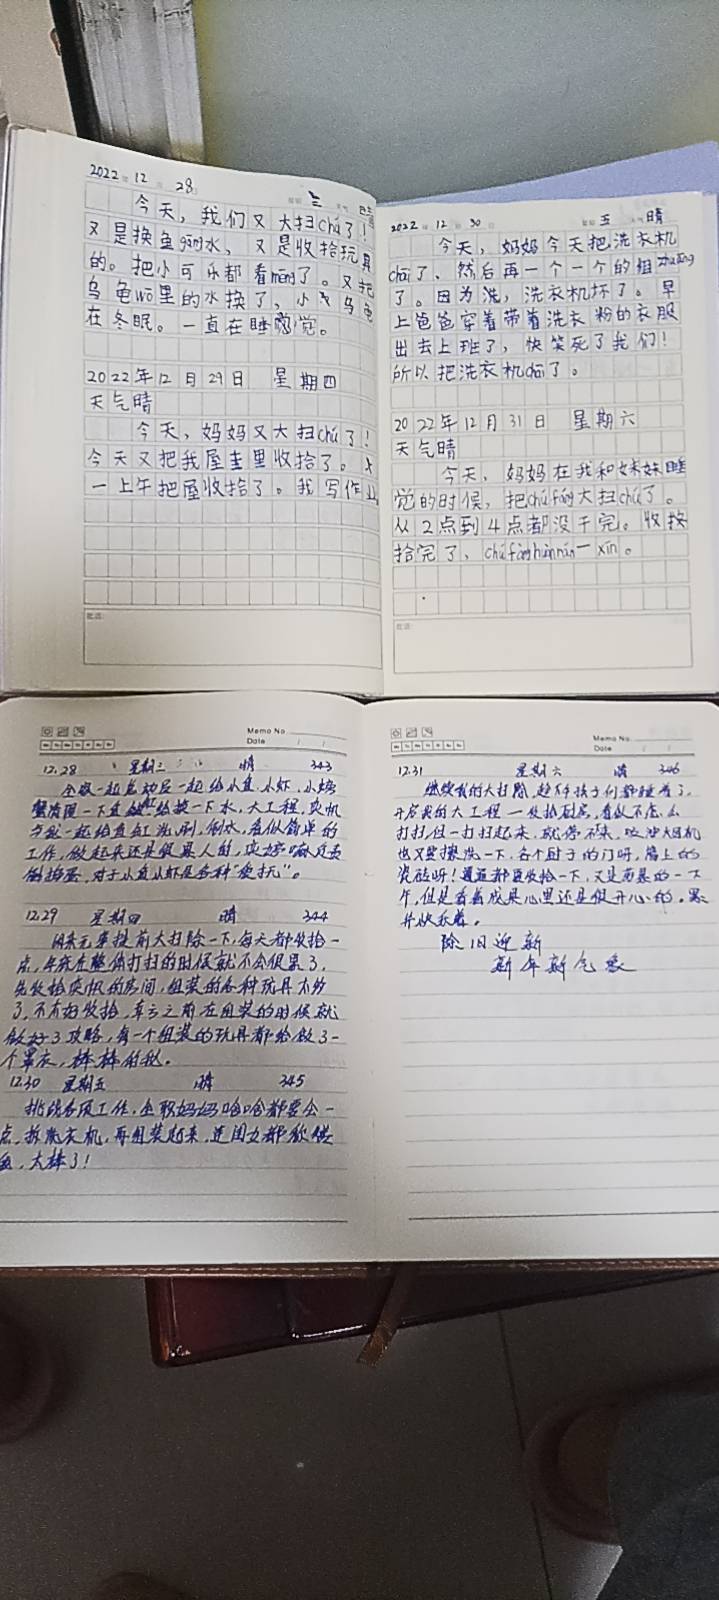 2022年 12月 28日 星期 三
今天，我们又大扫chú了！
又是换鱼gāng水，又是收拾玩具
的。把小可乐都看mēng了。又把
乌龟wō里的水换了，小乌龟
在冬眠。一直在睡觉。
2022年12月29日 星期四
天气晴
今天，妈妈又大扫chú了！
今天又把我屋里收拾了。
一上午把屋收拾了。我写作业
批语:
2022年 12月 30日 星期 五 晴
今天，妈妈今天把洗衣机
chāi了、然后再一个一个的组zhuāng
了。因为洗，洗衣机坏了。早
上爸爸穿着带着洗衣粉的衣服
出去上班了，快笑死了我们！
所以把洗衣机chāi了。
2022年12月31日 星期六
天气晴
今天，妈妈在我和妹妹睡
觉的时候，把chú fáng大扫chú了。
从2点到4点都没干完。收
拾完了、chú fáng huàn rán一xīn。
批语:
Memo No.
Date / /
12.28 星期三 晴 343
全家一起总动员一起给小鱼、小虾、小螃
蟹清理一下鱼缸，给换一下水，大工程，
一起给鱼缸洗刷，倒水，看似简单的
工作，做起来还是很累人的，
捣蛋，对于小鱼小虾是各种“侵扰”。
12.29 星期四 晴 344
闲来无事提前大扫除一下，每天都收拾一
点，年底在整体打扫的时候就不会很累了，
先收拾的房间，组装的各种玩具太多
了，不太好收拾，之前在组装的时候就
做好了攻略，每一个组装的玩具都给做了一
个罩衣，棒棒的我。
12.30 星期五 晴 345
挑战各项工作，全职妈妈啥啥都要会一
点，拆洗衣机，再组装起来，连闺女都
，太棒了！
Memo No.
Date / /
12.31 星期六 晴 346
继续我的大扫除，趁孩子们都睡着了，
开启我的大工程一收拾厨房，看似不怎么
打扫，但一打扫起来，就停不来，吸油烟机
也又要擦洗一下，各个厨子的门呀，墙上的
瓷砖呀！通通都要收拾一下，又是忙累的一下
午，但是看着成果心里还是很开心的。累
并快乐着。
除旧迎新
新年新气象